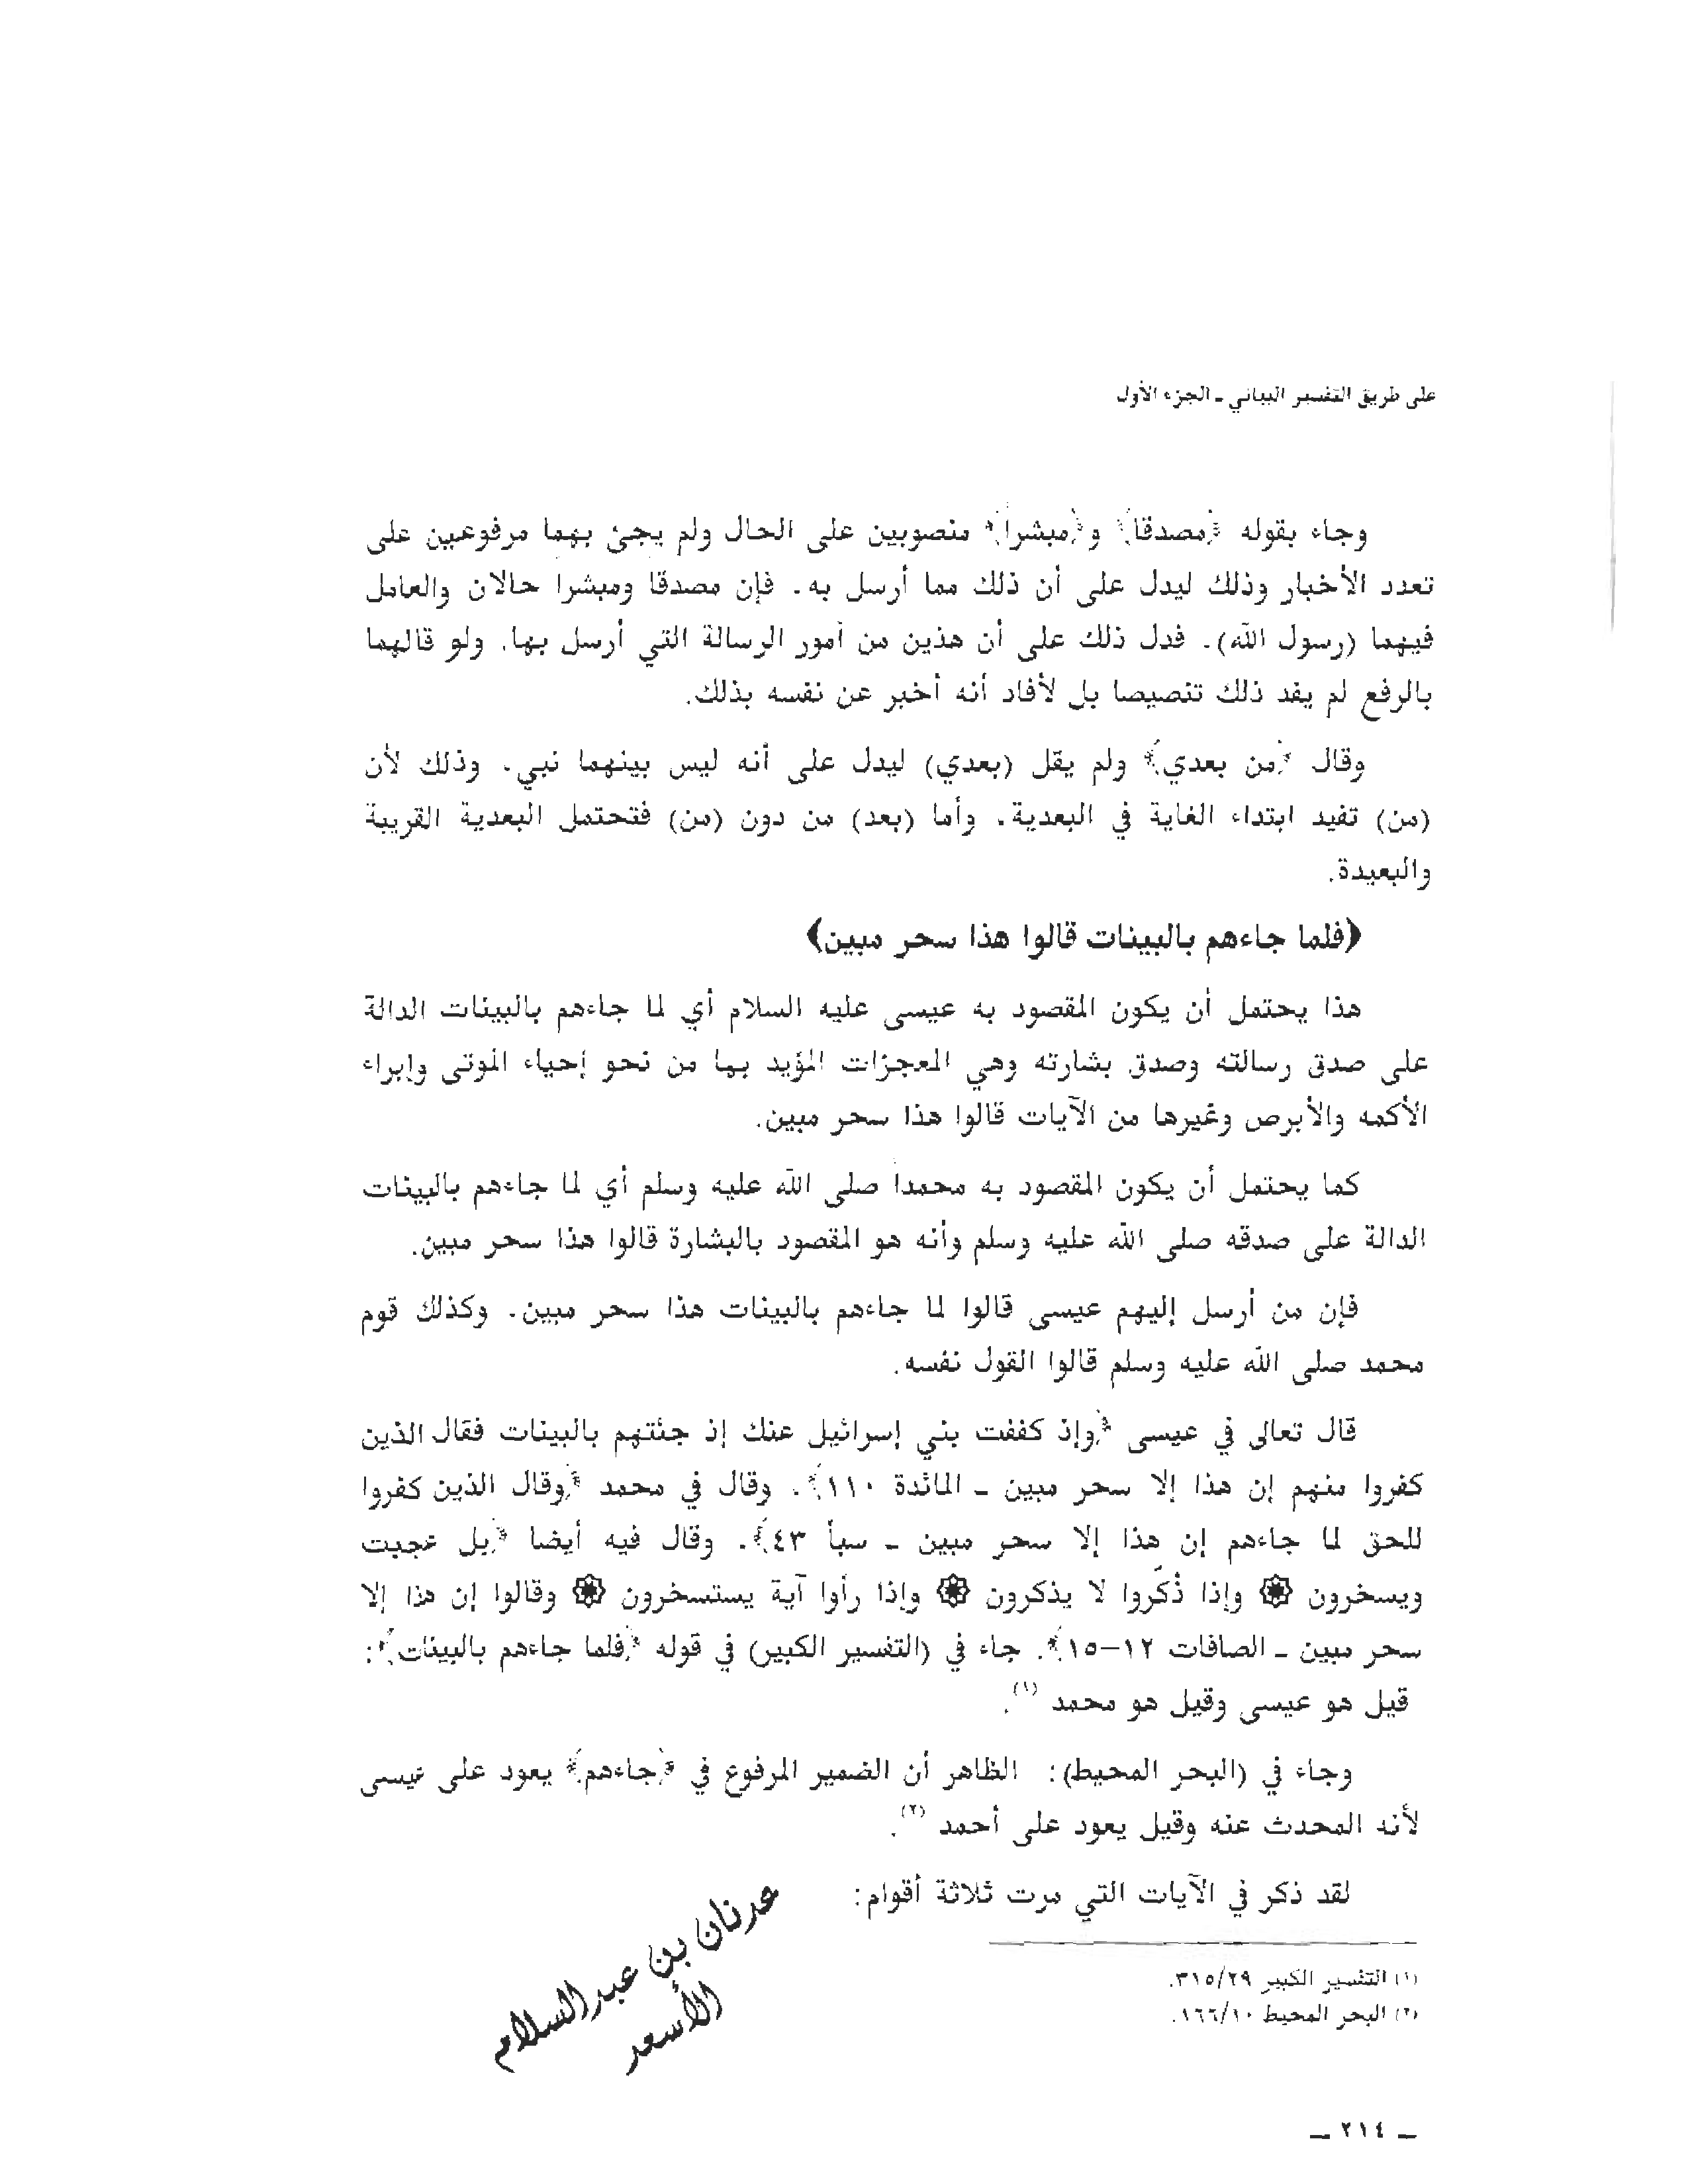 على طريق التفسير البياني ـ الجزء الأول
وجاء بقوله ﴿مصدقاً﴾ و﴿مبشراً﴾ منصوبين على الحال ولم يجئ بهما مرفوعين على
تعدد الأخبار وذلك ليدل على أن ذلك مما أرسل به. فإن مصدقا ومبشرا حالان والعامل
فيهما (رسول الله). فدل ذلك على أن هذين من أمور الرسالة التي أرسل بها. ولو قالهما
بالرفع لم يفد ذلك تنصيصا بل لأفاد أنه أخبر عن نفسه بذلك.
وقال ﴿من بعدي﴾ ولم يقل (بعدي) ليدل على أنه ليس بينهما نبي. وذلك لأن
(من) تفيد ابتداء الغاية في البعدية. وأما (بعد) من دون (من) فتحتمل البعدية القريبة
والبعيدة.
﴿فلما جاءهم بالبينات قالوا هذا سحر مبين﴾
هذا يحتمل أن يكون المقصود به عيسى عليه السلام أي لما جاءهم بالبينات الدالة
على صدق رسالته وصدق بشارته وهي المعجزات المؤيد بها من نحو إحياء الموتى وإبراء
الأكمه والأبرص وغيرها من الآيات قالوا هذا سحر مبين.
كما يحتمل أن يكون المقصود به محمداً صلى الله عليه وسلم أي لما جاءهم بالبينات
الدالة على صدقه صلى الله عليه وسلم وأنه هو المقصود بالبشارة قالوا هذا سحر مبين.
فإن من أرسل إليهم عيسى قالوا لما جاءهم بالبينات هذا سحر مبين. وكذلك قوم
محمد صلى الله عليه وسلم قالوا القول نفسه.
قال تعالى في عيسى ﴿وإذ كففت بني إسرائيل عنك إذ جئتهم بالبينات فقال الذين
كفروا منهم إن هذا إلا سحر مبين ـ المائدة ١١٠﴾. وقال في محمد ﴿وقال الذين كفروا
للحق لما جاءهم إن هذا إلا سحر مبين ـ سبأ ٤٣﴾. وقال فيه أيضا ﴿بل عجبت
ويسخرون ۞ وإذا ذُكّروا لا يذكرون ۞ وإذا رأوا آية يستسخرون ۞ وقالوا إن هذا إلا
سحر مبين ـ الصافات ١٢–١٥﴾. جاء في (التفسير الكبير) في قوله ﴿فلما جاءهم بالبينات﴾:
قيل هو عيسى وقيل هو محمد (١).
وجاء في (البحر المحيط): الظاهر أن الضمير المرفوع في ﴿جاءهم﴾ يعود على عيسى
لأنه المحدث عنه وقيل يعود على أحمد (٢).
لقد ذكر في الآيات التي مرت ثلاثة أقوام:
عدنان بن عبدالسلام
الأسعد
(١) التفسير الكبير ٣١٥/٢٩.
(٢) البحر المحيط ١٦٦/١٠.
ـ ٢١٤ ـ